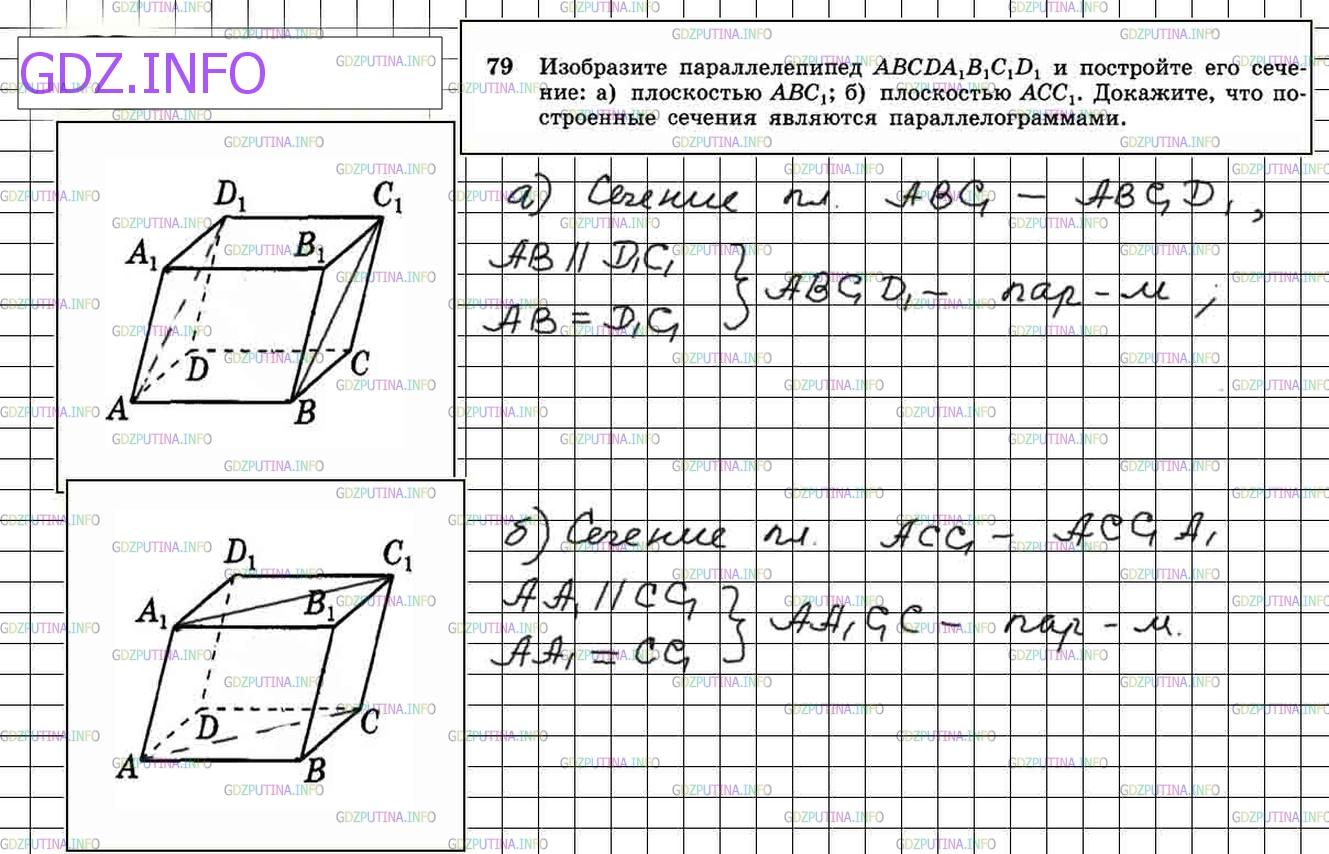 GDZ.INFO
79 Изобразите параллелепипед ABCDA₁B₁C₁D₁ и постройте его сече-
ние: а) плоскостью ABC₁; б) плоскостью ACC₁. Докажите, что по-
строенные сечения являются параллелограммами.
D₁ C₁
A₁ B₁
D C
A B
а) Сечение пл. ABC₁ — ABC₁D₁,
AB || D₁C₁
AB = D₁C₁
} ABC₁D₁ — пар-м;
D₁ C₁
A₁ B₁
D C
A B
б) Сечение пл. ACC₁ — ACC₁A₁
AA₁ || CC₁
AA₁ = CC₁
} AA₁C₁C — пар-м.
GDZPUTINA.INFO